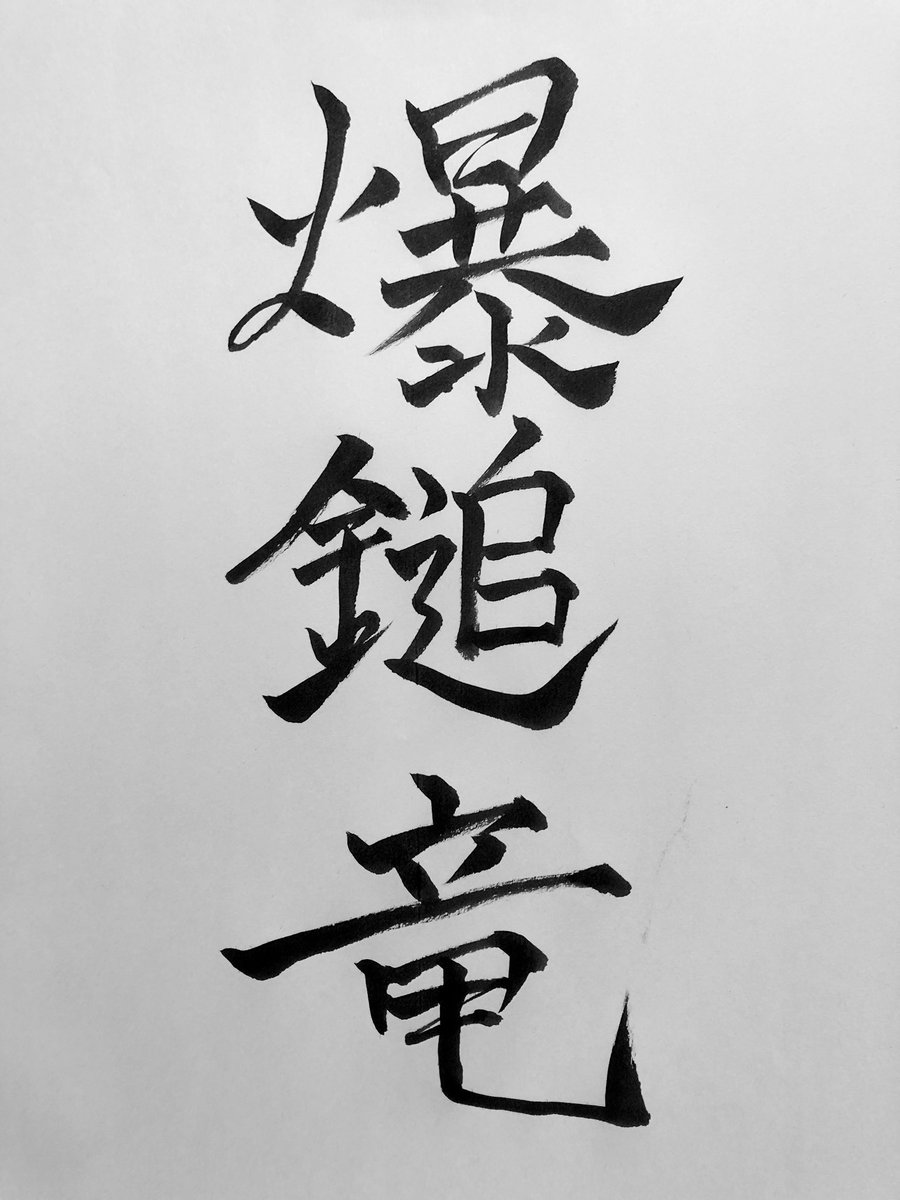 爆鎚竜